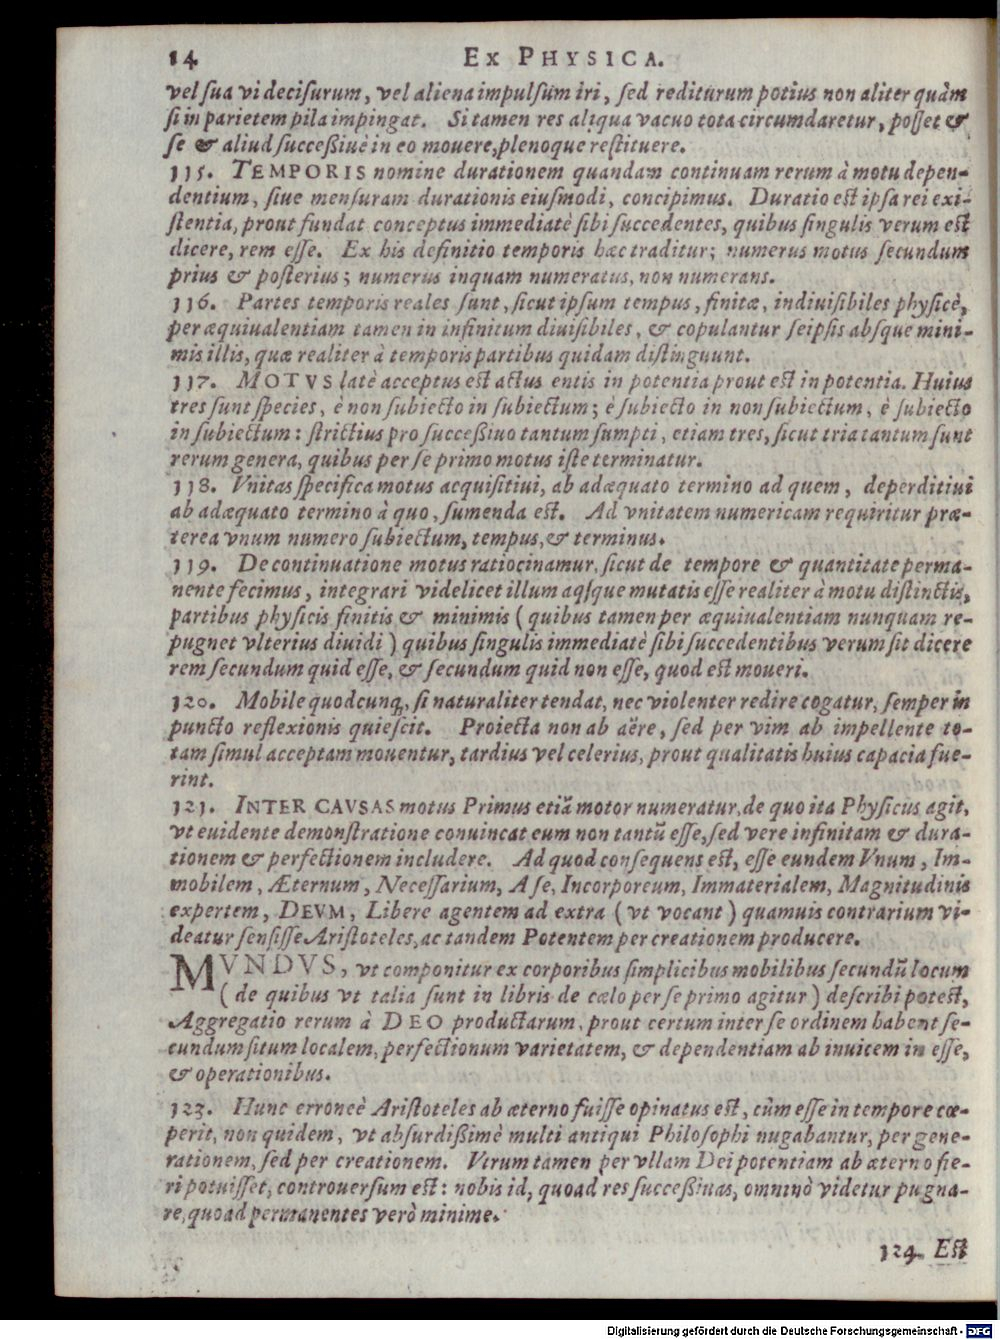 14 EX PHYSICA.
vel sua vi decisurum, vel aliena impulsum iri, sed rediturum potius non aliter quàm
si in parietem pila impingat. Si tamen res aliqua vacuo tota circumdaretur, posset &
se & aliud successiuè in eo mouere, plenoque restituere.
115. TEMPORIS nomine durationem quandam continuam rerum à motu depen-
dentium, siue mensuram durationis eiusmodi, concipimus. Duratio est ipsa rei exi-
stentia, prout fundat conceptus immediatè sibi succedentes, quibus singulis verum est
dicere, rem esse. Ex his definitio temporis hæc traditur; numerus motus secundum
prius & posterius; numerus inquam numeratus, non numerans.
116. Partes temporis reales sunt, sicut ipsum tempus, finitæ, indiuisibiles physicè,
per æquiualentiam tamen in infinitum diuisibiles, & copulantur seipsis absque mini-
mis illis, quæ realiter à temporis partibus quidam distinguunt.
117. MOTVS latè acceptus est actus entis in potentia prout est in potentia. Huius
tres sunt species, è non subiecto in subiectum; è subiecto in non subiectum, è subiecto
in subiectum: strictius pro successiuo tantum sumpti, etiam tres, sicut tria tantum sunt
rerum genera, quibus per se primo motus iste terminatur.
118. Vnitas specifica motus acquisitiui, ab adæquato termino ad quem, deperditiui
ab adæquato termino à quo, sumenda est. Ad vnitatem numericam requiritur præ-
terea vnum numero subiectum, tempus, & terminus.
119. De continuatione motus ratiocinamur, sicut de tempore & quantitate perma-
nente fecimus, integrari videlicet illum aqsque mutatis esse realiter à motu distinctis,
partibus physicis finitis & minimis ( quibus tamen per æquiualentiam nunquam re-
pugnet vlterius diuidi ) quibus singulis immediatè sibi succedentibus verum sit dicere
rem secundum quid esse, & secundum quid non esse, quod est moueri.
120. Mobile quodcunq, si naturaliter tendat, nec violenter redire cogatur, semper in
puncto reflexionis quiescit. Proiecta non ab aëre, sed per vim ab impellente to-
tam simul acceptam mouentur, tardius vel celerius, prout qualitatis huius capacia fue-
rint.
121. INTER CAVSAS motus Primus etiã motor numeratur, de quo ita Physicus agit,
vt euidente demonstratione conuincat eum non tantũ esse, sed vere infinitam & dura-
tionem & perfectionem includere. Ad quod consequens est, esse eundem Vnum, Im-
mobilem, Æternum, Necessarium, A se, Incorporeum, Immaterialem, Magnitudinis
expertem, DEVM, Libere agentem ad extra ( vt vocant ) quamuis contrarium vi-
deatur sensisse Aristoteles, ac tandem Potentem per creationem producere.
MVNDVS, vt componitur ex corporibus simplicibus mobilibus secundũ locum
( de quibus vt talia sunt in libris de cælo per se primo agitur ) describi potest,
Aggregatio rerum à DEO productarum, prout certum inter se ordinem habent se-
cundum situm localem, perfectionum varietatem, & dependentiam ab inuicem in esse,
& operationibus.
123. Hunc erroneè Aristoteles ab æterno fuisse opinatus est, cùm esse in tempore cœ-
perit, non quidem, vt absurdißimè multi antiqui Philosophi nugabantur, per gene-
rationem, sed per creationem. Vtrum tamen per vllam Dei potentiam ab æterno fie-
ri potuisset, controuersum est: nobis id, quoad res successiuas, omninò videtur pugna-
re, quoad permanentes verò minime.
124. Est
Digitalisierung gefördert durch die Deutsche Forschungsgemeinschaft - DFG